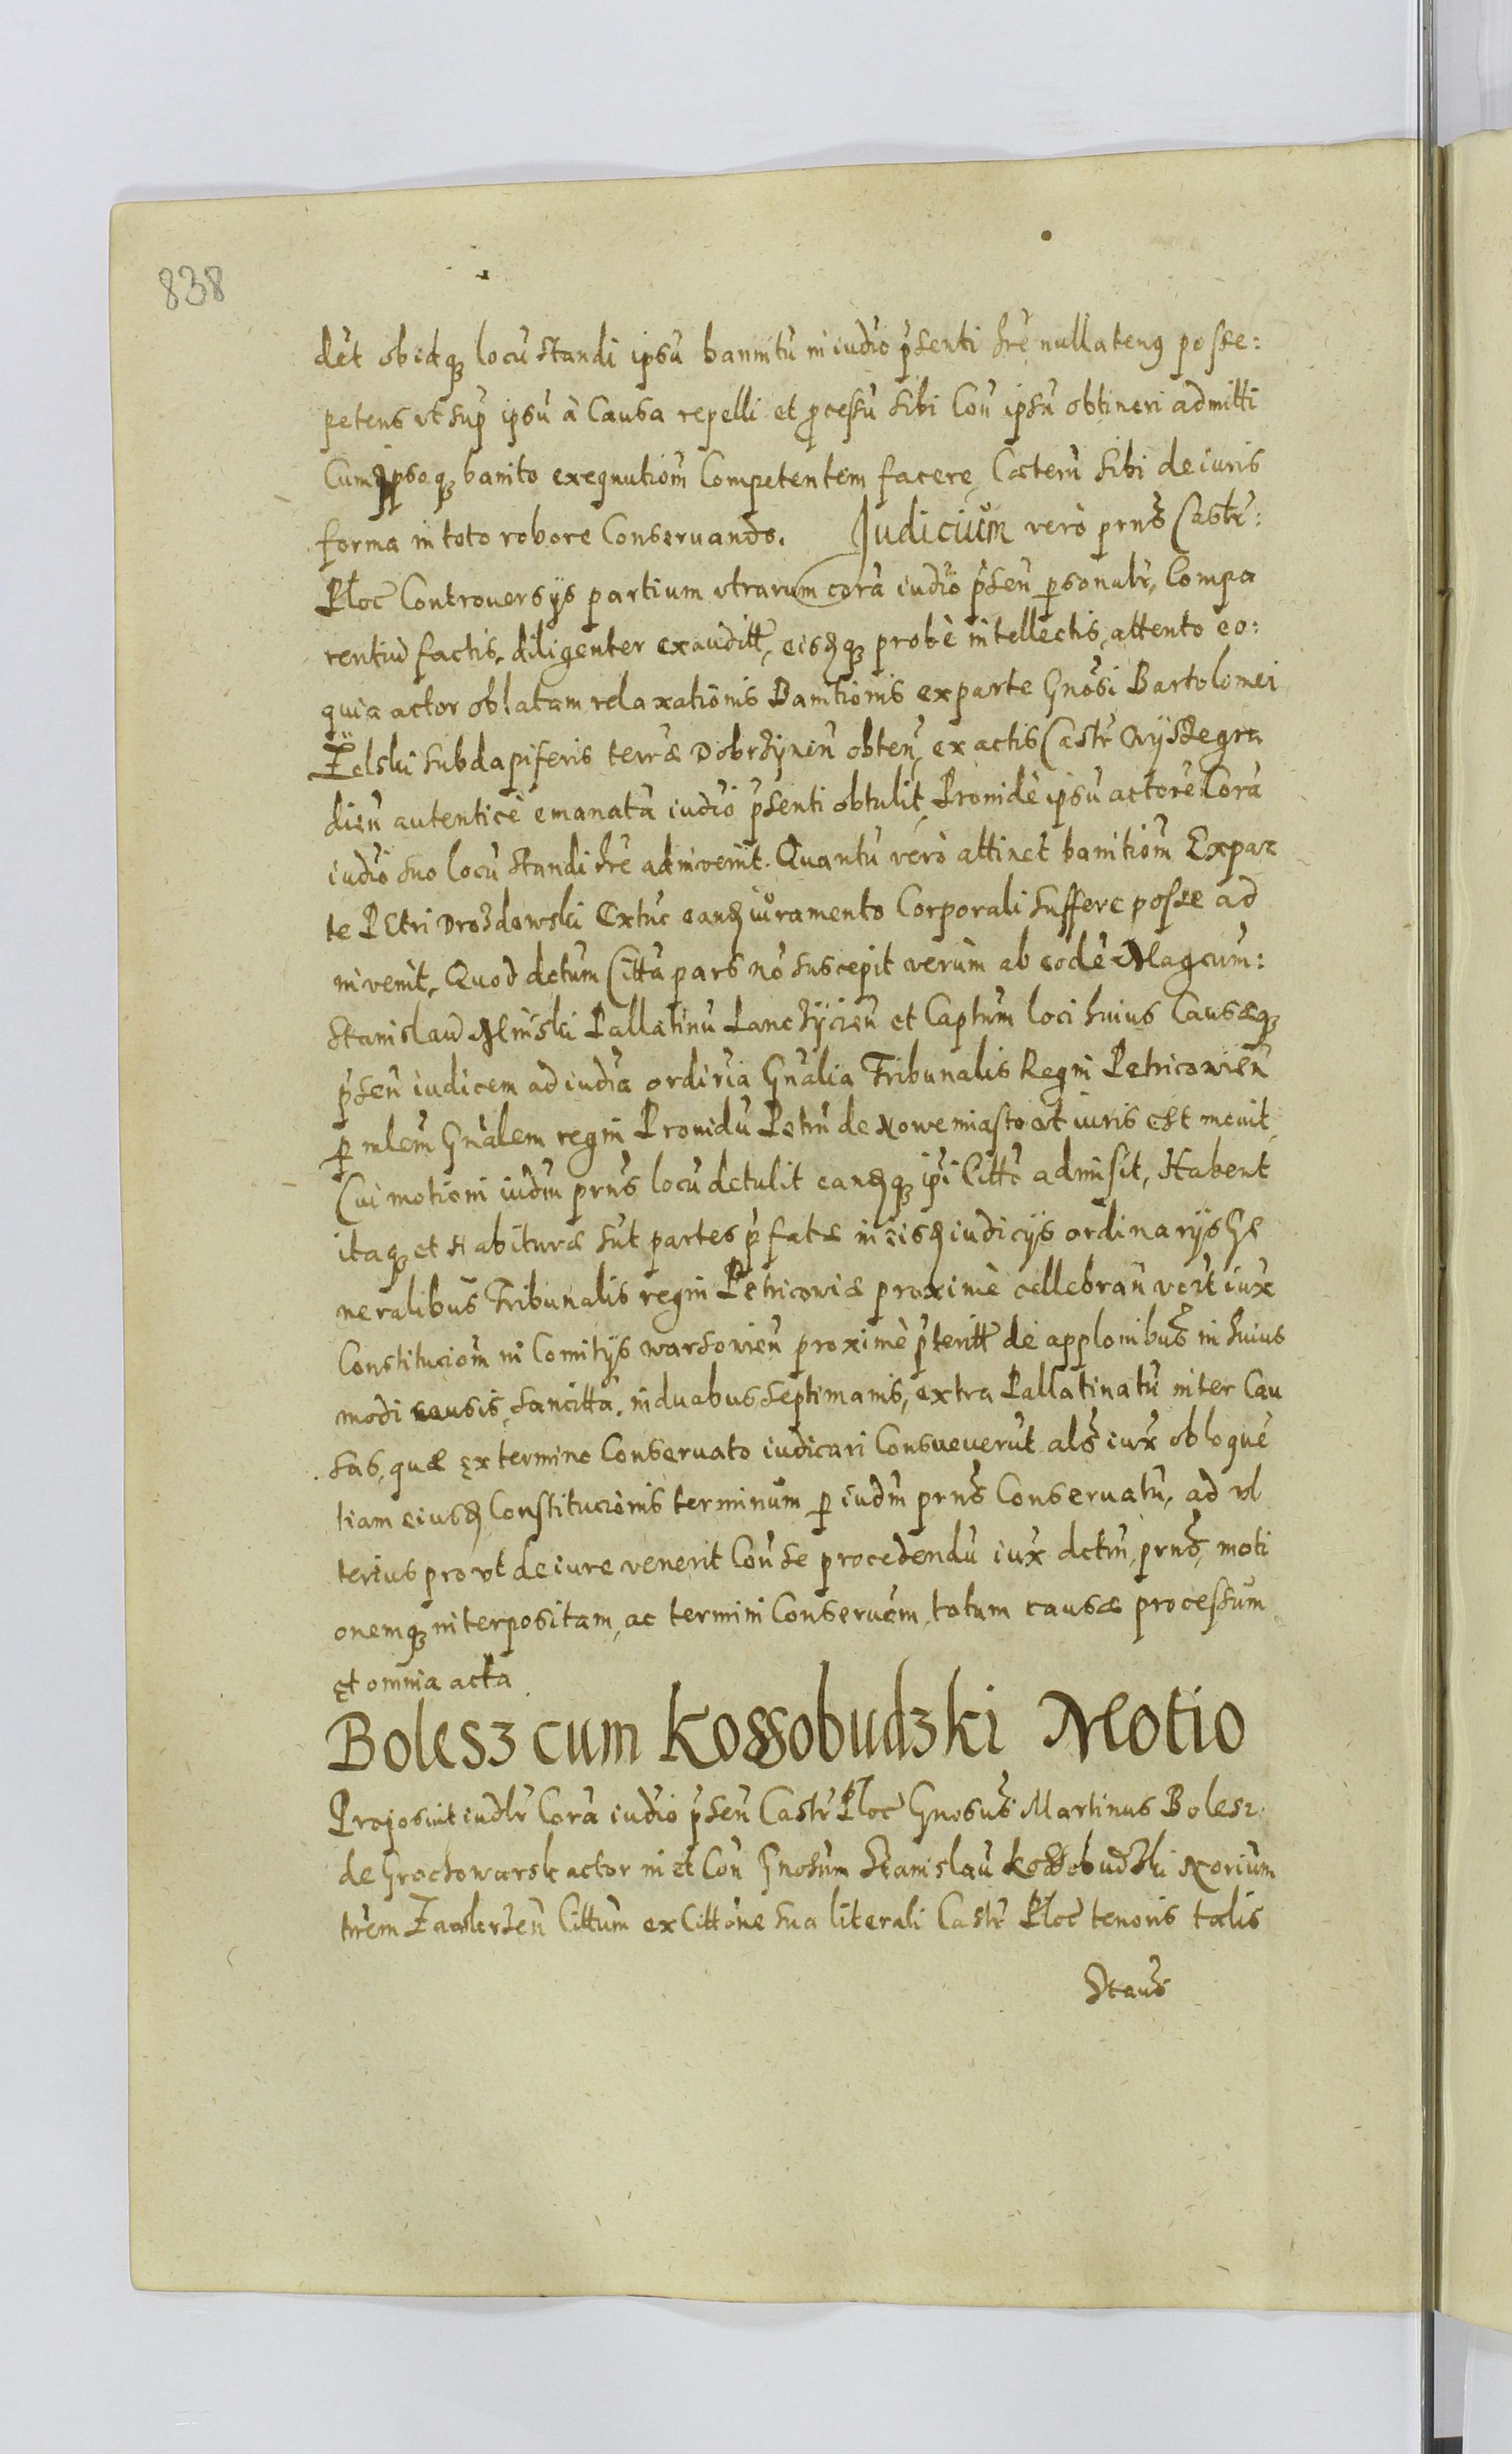 838
dēt obidq₃ locū standi ipsū bannitū in iudīo pr̄senti hr̄e nullatenꝰ posse:
petens vt sup̄ ipsū à Causa repelli et ꝓcessū sibi Coñ ipsū obtineri admitti
Cumq₃ ipsoq₃ banito exequutiom̄ Competentem facere, Cæterū sibi de iuris
forma in toto robore Conseruando. Judiciūm verò prn̄s Castr̄:
Ploc̄ Controuersijs partium vtrarum corā iudīo pr̄señ ꝑsonalr̄, Compa
rentiū factis, diligenter exauditt̄, eisdq₃ probè intellectis, attento eo:
quia actor oblatam relaxatiōnis Banitionis ex parte Gnōsi Bartolomei
Zelski Subdapiferis terræ Dobrzyneñ obteñ, ex actis Castr̄ Wyszegra
dieñ autenticè emanatā iudīo pr̄senti obtulit, Proindè ipsū actorē Corā
iudīo suo locū standi hr̄e adinvenit. Quantū verò attinet banitiom̄ Expar
te Petri Drozdowski Extūc eand iūramento Corporali sufferre posse ad
invenit, Quod dctum Citta pars nō suscepit verùm ab eodē Magcum:
Stanislaū Minski Pallatinū Lanczycieñ et Captum loci huius Causæq₃
pr̄señ iudicem ad iudīa ordirīa Gn̄alia Tribunalis Regni Petricouieñ
ꝑ mlem̄ Gn̄alem regni Prouidū Petrū de Nowemiasto vt iuris est mouit,
Cui motioni iudm̄ prn̄s locū detulit eandq₃ ipī Citto admisit, Habent
itaq₃ et Habituræ sūt partes pr̄fatæ in eisd iudicijs ordinarijs Ge
neralibūs Tribunalis regni Petricouiæ proximè cellebrañ vert̄ iux̄
Constituciom̄ in Comitijs warsouieñ proximè pr̄teritt̄ de applonibūs in huius
modi causis, sancittā, in duabus septimanis, extra Pallatinatū inter Cau
sas, quæ ex termino Conseruato iudicari Consueuerūt als̄ iux̄ obloquē
tiam eiusd Constitucionis terminūm ꝑ iudm̄ prn̄s Conseruatū, ad vl
terius pro vt de iure venerit Coñ se procedendū iux̄ dctm̄, prn̄s, moti
onemq₃ interpositam, ac termini Conseruom̄, totum causæ processūm
et omnia acta
Bolesz cum Kossobudzki Motio
Proposuit iudlr̄ Corā iudīo pr̄señ Castr̄ Ploc̄ Gnosūs Martinus Bolesz
de Grochowarsk actor in et Coñ Gnosum Stanislaū Kossobudzki Norium
trem̄ Zawkrzeñ Cittum ex Cittōne sua literali Castr̄ Ploc̄ tenoris talis
Staūs